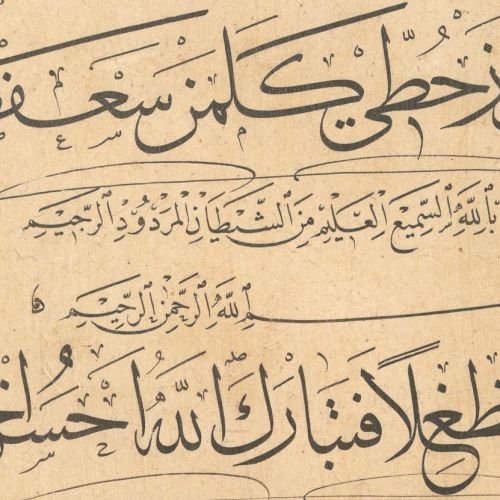 ز حطي كلمن سعف
بالله السميع العليم من الشيطان المردود الرجيم
بسم الله الرحمن الرحيم
ضظغلا فتبارك الله احسن